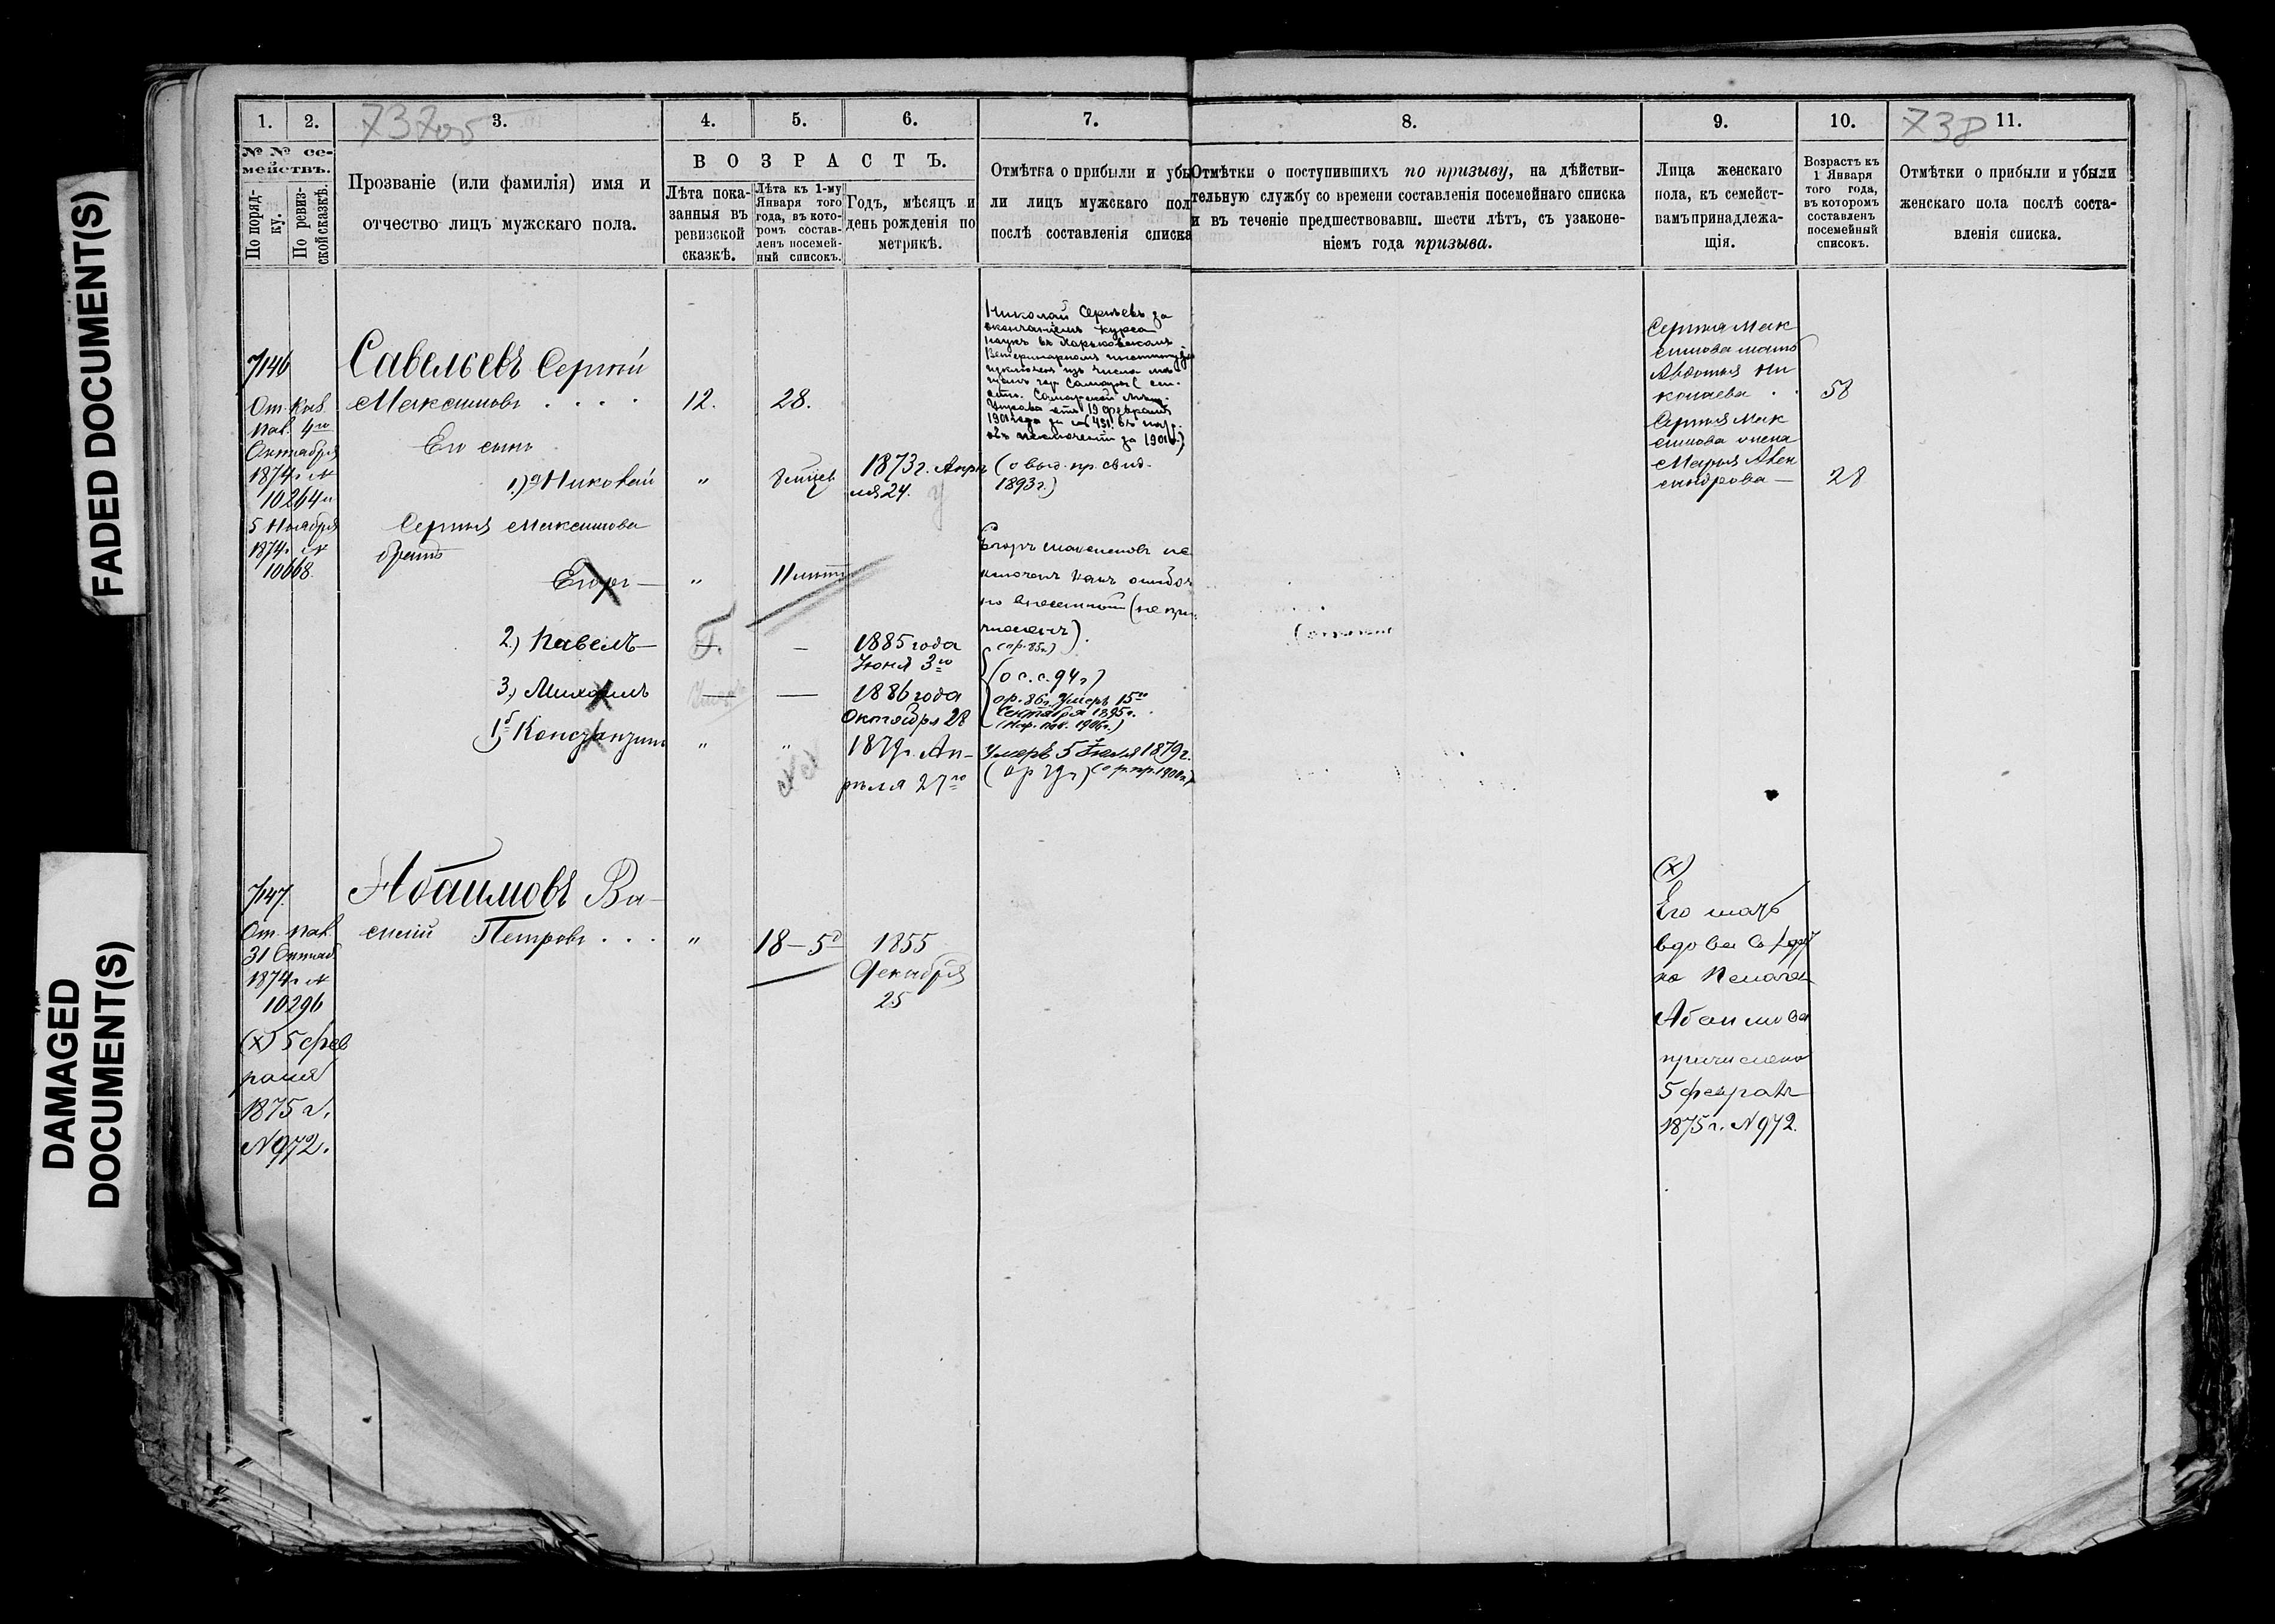 FADED DOCUMENT(S)
DAMAGED
DOCUMENT(S)
1.
2.
3.
4.
5.
6.
7.
8.
9.
10.
11.
737об
738
№ № се-
мействъ.
По поряд-
ку.
По ревиз-
ской сказкѣ.
Прозваніе (или фамилія) имя и
отчество лицъ мужскаго пола.
ВОЗРАСТЪ.
Лѣта пока-
занныя въ
ревизской
сказкѣ.
Лѣта къ 1-му
Января того
года, въ кото-
ромъ состав-
ленъ посемей-
ный списокъ.
Годъ, мѣсяцъ и
день рожденія по
метрикѣ.
Отмѣтка о прибыли и убы
ли лицъ мужскаго пол
послѣ составленія списка
Отмѣтки о поступившихъ по призыву, на дѣйстви-
тельную службу со времени составленія посемейнаго списка
и въ теченіе предшествовавш. шести лѣтъ, съ узаконе-
ніемъ года призыва.
Лица женскаго
пола, къ семейст-
вамъ принадлежа-
щія.
Возрастъ къ
1 Января
того года,
въ которомъ
составленъ
посемейный
списокъ.
Отмѣтки о прибыли и убыли
женскаго пола послѣ соста-
вленія списка.
7146
От. Каз.
Пал. 4го
Октября
1874 г. №
10264 и
5 Ноября
1874 г. №
10668.
Савельевъ Сергѣй
Максимовъ . . . .
12.
28.
Его сынъ
1.) а Николай
"
1873 г. Апрѣ
ля 24.
Сергѣя Максимова
братъ
Егоръ —
"
11 лѣтъ
2.) Павелъ —
—
1885 года
Іюня 3го
3.) Михаилъ
—
—
1886 года
Октября 28
1б) Константинъ
"
"
1879 г. Ап-
рѣля 27го
Николай Сергѣевъ за
окончаніемъ курса
наукъ въ Харьковскомъ
Ветеринарномъ институтѣ
исключенъ изъ числа мѣ
щанъ гор. Самары (
Самарской Мѣщ.
Управы отъ 19 февраля
1901 года за № 491.
объ исключеніи за 1901 г.)
(о выд. пр. свид.
1893 г.)
Егоръ Максимовъ ис
ключенъ какъ ошибоч
но внесенный (не при-
численъ).
(ор. 85 г.)
(о с. с. 94 г.)
ор. 86 г. Умеръ 15го
Сентября 1895 г.
Умеръ 5 Іюля 1879 г.
(ор 79 г.) (о р. пр. 1900 г.)
Сергѣя Мак
симова мать
Авдотья Ни
колаева . .
58
Сергѣя Мак
симова жена
Марья Алек
сандрова —
28
7147.
От. Пал.
31 Октяб.
1874 г. №
10296
(х) 5 фев
раля
1875 г.
№ 972.
Абаимовъ Ва-
силій Петровъ . . .
"
18 – 5д
1855
Декабря
25
(х)
Его мать
вдова
Абаимова
причислена
5 февраля
1875 г. № 972.